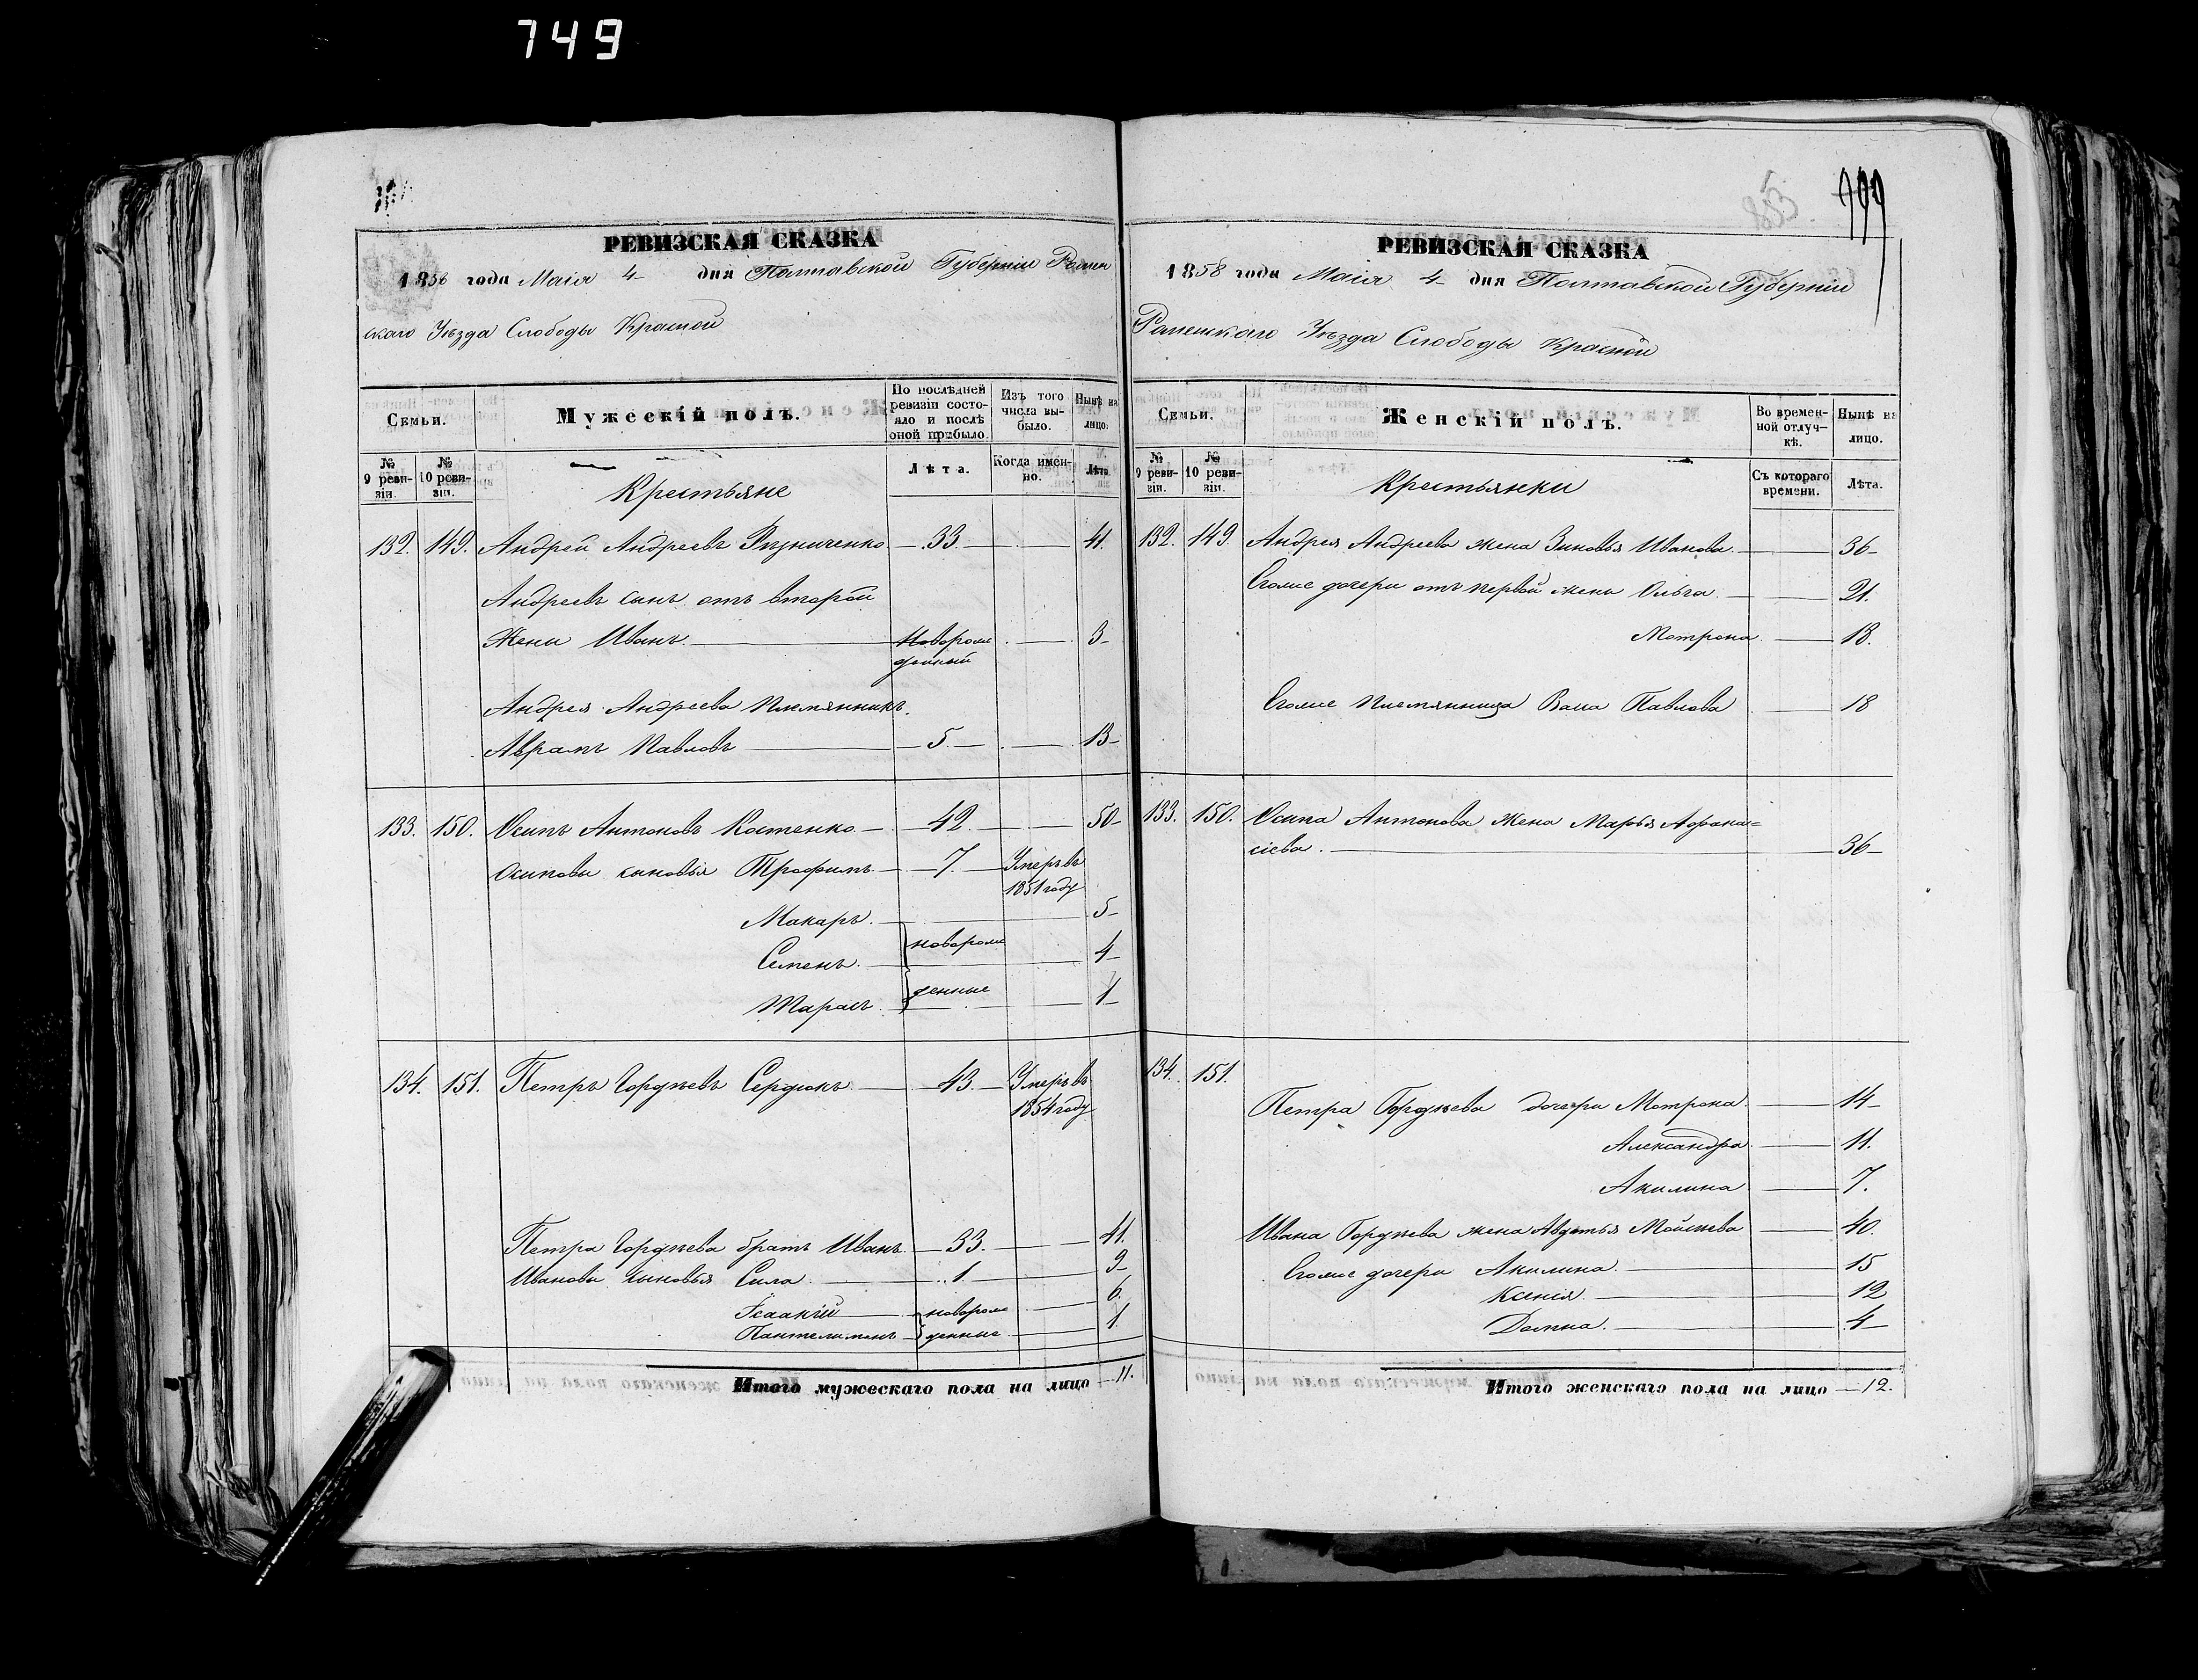 749
РЕВИЗСКАЯ СКАЗКА
1858 года Маія 4 дня Полтавской Губерніи Ромен
скаго Уѣзда Слободы Красной
Семьи.
Мужескій полъ.
По послѣдней ревизіи состояло и послѣ оной прибыло.
Изъ того числа выбыло.
Нынѣ на лицо.
№ 9 ревизіи.
№ 10 ревизіи.
Крестьяне
Лѣта.
Когда именно.
Лѣта.
132. 149. Андрей Андреевъ Ризниченко 33. 41.
Андреевъ сынъ отъ второй
Жены Иванъ. Новорож 3
денный
Андрея Андреева племянникъ
Аврамъ Павловъ 5. 13
133. 150. Осипъ Антоновъ Костенко 42. 50
Осиповы сыновья Трофимъ 7. Умеръ въ
1851 году
Макаръ. 5
Семенъ. новорож 4
Тарасъ денные 1
134. 151. Петръ Гордѣевъ Сердюкъ 43. Умеръ въ
1854 году
Петра Гордѣева братъ Иванъ 33. 41.
Ивановы сыновья Сила 1. 9
Ісаакій новорож 6.
Пантелимонъ денные 1
Итого мужескаго пола на лицо 11.
855 999
РЕВИЗСКАЯ СКАЗКА
1858 года Маія 4 дня Полтавской Губерніи
Роменскаго Уѣзда Слободы Красной
Семьи.
Женскій полъ.
Во временной отлучкѣ.
Нынѣ на лицо.
№ 9 ревизіи.
№ 10 ревизіи.
Крестьянки
Съ котораго времени.
Лѣта.
132. 149. Андрея Андреева жена Зиновья Иванова 36
Егоже дочери отъ первой жены Ольга 21.
Мотрона 18.
Егоже племянница Васа Павлова 18
133. 150. Осипа Антонова жена Марья Афана=
сіева. 36
134. 151.
Петра Гордѣева дочери Мотрона 14
Александра 11.
Акилина 7.
Ивана Гордѣева жена Авдотья Мойсѣева 40.
Егоже дочери Акилина. 15
Ксенія. 12
Домна. 4
Итого женскаго пола на лицо 12.